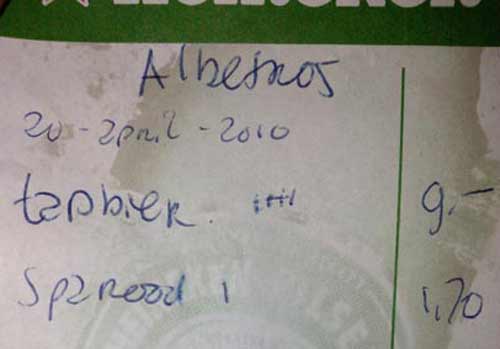 Albetros
20 - april - 2010
tapbier. 9.-
Spa Rood 1 1,70